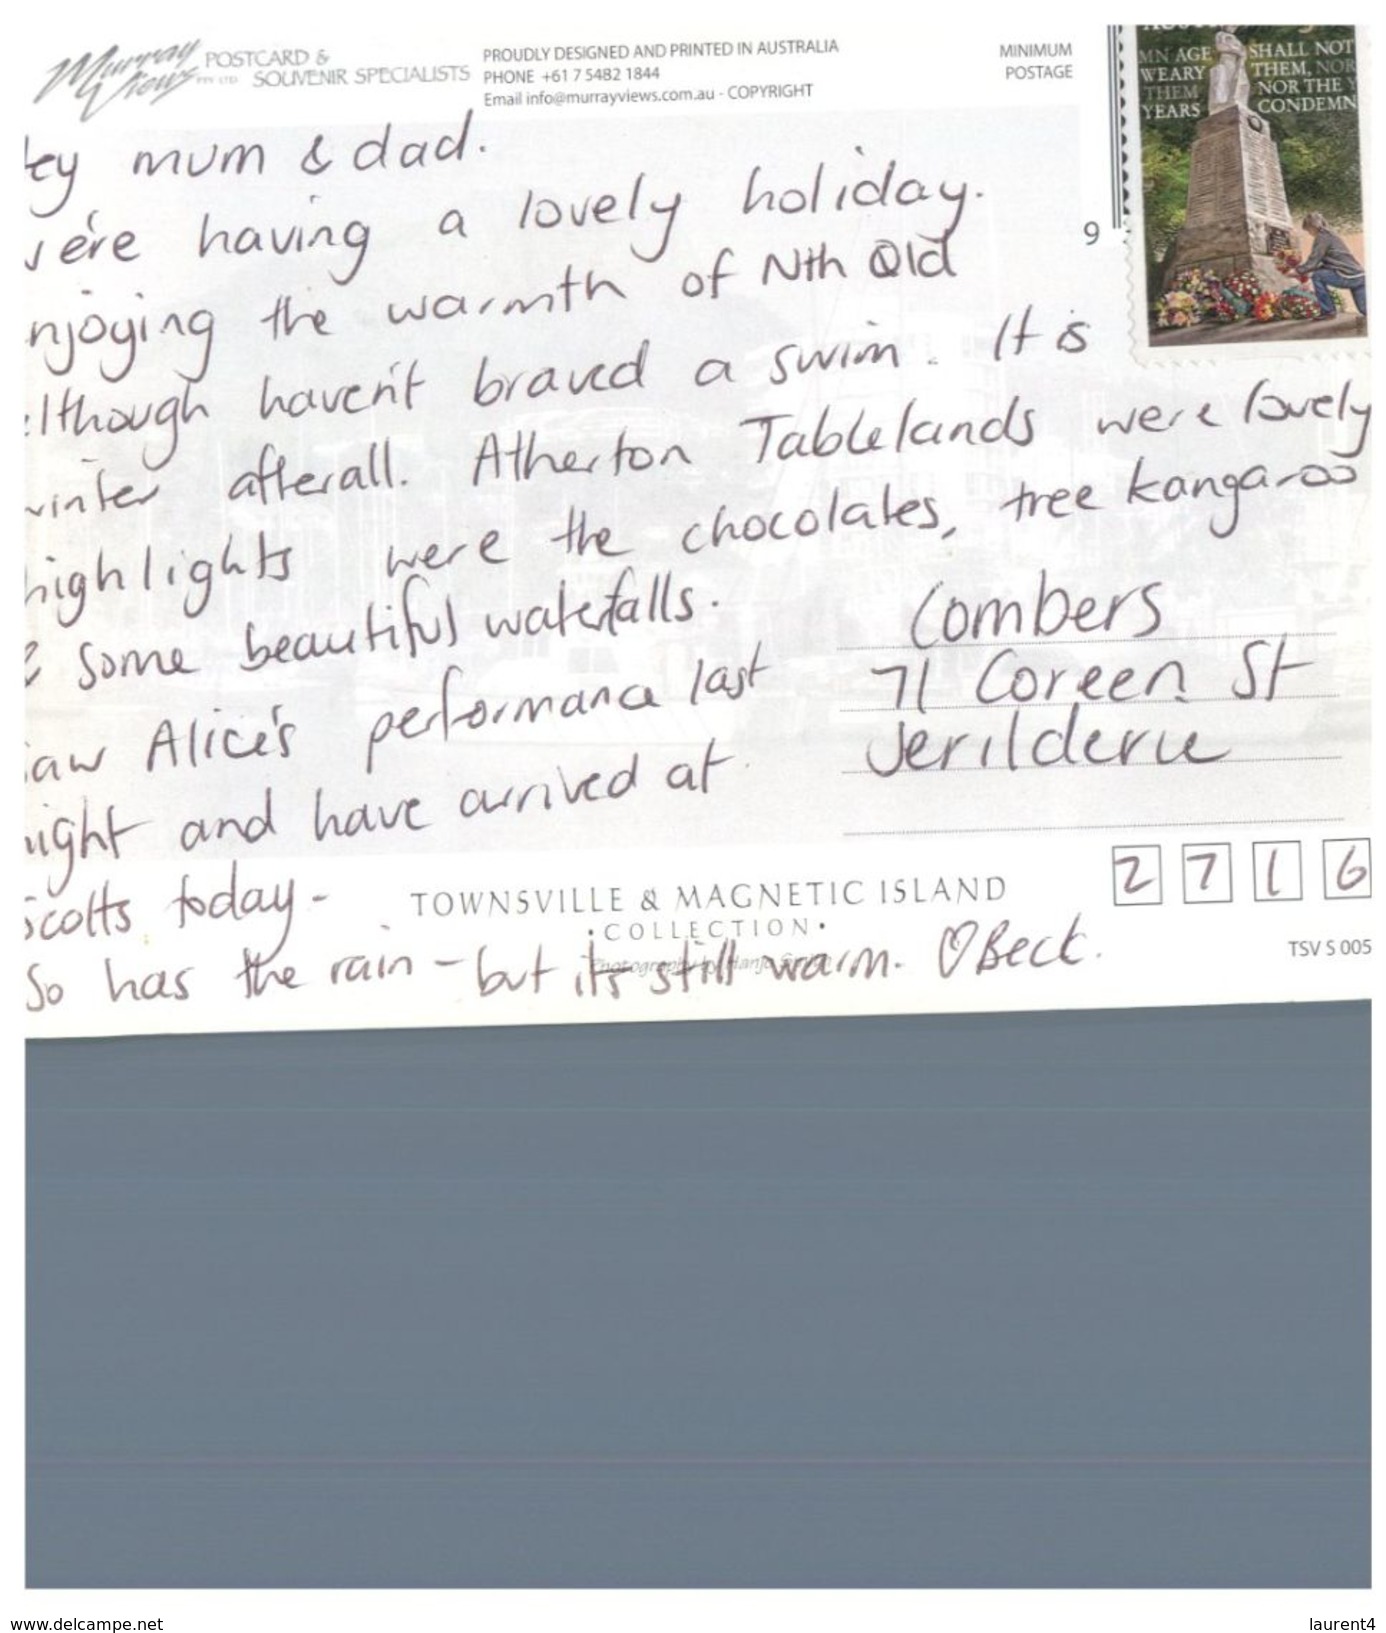 Murray Views PTY LTD
POSTCARD & SOUVENIR SPECIALISTS
PROUDLY DESIGNED AND PRINTED IN AUSTRALIA
PHONE +61 7 5482 1844
Email info@murrayviews.com.au - COPYRIGHT
MINIMUM
POSTAGE
MN AGE SHALL NOT
WEARY THEM, NOR
THEM NOR THE Y
YEARS CONDEMN
9
ey mum & dad.
we're having a lovely holiday.
njoying the warmth of Nth Qld
lthough haven't braved a swim. It is
winter afterall. Atherton Tablelands were lovely
highlights were the chocolates, tree kangaroo
& some beautiful waterfalls.
aw Alice's performance last
night and have arrived at
Scotts today -
So has the rain - but it's still warm. ♡ Beck.
Combers
71 Coreen St
Jerilderie
2716
TOWNSVILLE & MAGNETIC ISLAND
• COLLECTION •
Photography by
TSV S 005
www.delcampe.net
laurent4